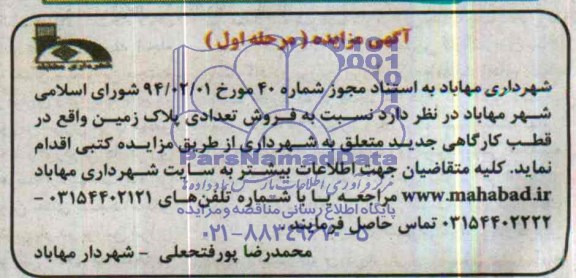 آگهی مزایده (مرحله اول)
شهرداری مهاباد
شهرداری مهاباد به استناد مجوز شماره ۴۰ مورخ ۹۴/۰۲/۰۱ شورای اسلامی
شهر مهاباد در نظر دارد نسبت به فروش تعدادی پلاک زمین واقع در
قطب کارگاهی جدید متعلق به شهرداری از طریق مزایده کتبی اقدام
نماید. کلیه متقاضیان جهت اطلاعات بیشتر به سایت شهرداری مهاباد
www.mahabad.ir مراجعه یا با شماره تلفن‌های ۰۳۱۵۴۴۰۲۱۲۱ -
۰۳۱۵۴۴۰۲۲۲۲ تماس حاصل فرمایند.
محمدرضا پورفتحعلی - شهردار مهاباد
ParsNamadData
مرکز فرآوری اطلاعات پارس نماد داده ها
پایگاه اطلاع رسانی مناقصه و مزایده
۰۲۱-۸۸۳۴۹۶۷۰-۵